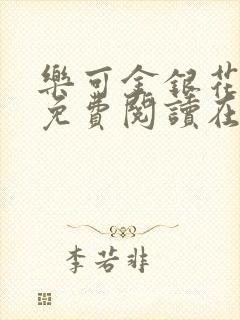 樂可金銀花
免費閱讀在
李若非